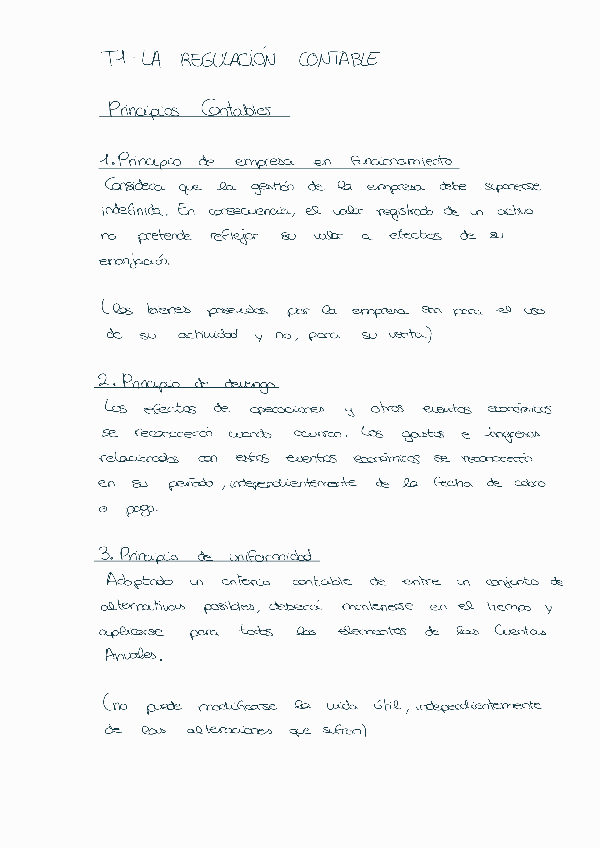 T-1. LA REGULACIÓN CONTABLE
Principios Contables
1. Principio de empresa en funcionamiento
Considera que la gestión de la empresa debe suponerse
indefinida. En consecuencia, el valor registrado de un activo
no pretende reflejar su valor a efectos de su
enajación.
(los bienes poseídos por la empresa son para el uso
de su actividad y no, para su venta)
2. Principio de devengo
Los efectos de operaciones y otros eventos económicos
se reconocerán cuando ocurran. Los gastos e ingresos
relacionados con estos eventos económicos se reconocerán
en su periodo, independientemente de la fecha de cobro
o pago.
3. Principio de uniformidad
Adoptado un criterio contable de entre un conjunto de
alternativas posibles, deberá mantenerse en el tiempo y
aplicarse para todos los elementos de las Cuentas
Anuales.
(no puede modificarse la vida útil, independientemente
de las alteraciones que sufran)